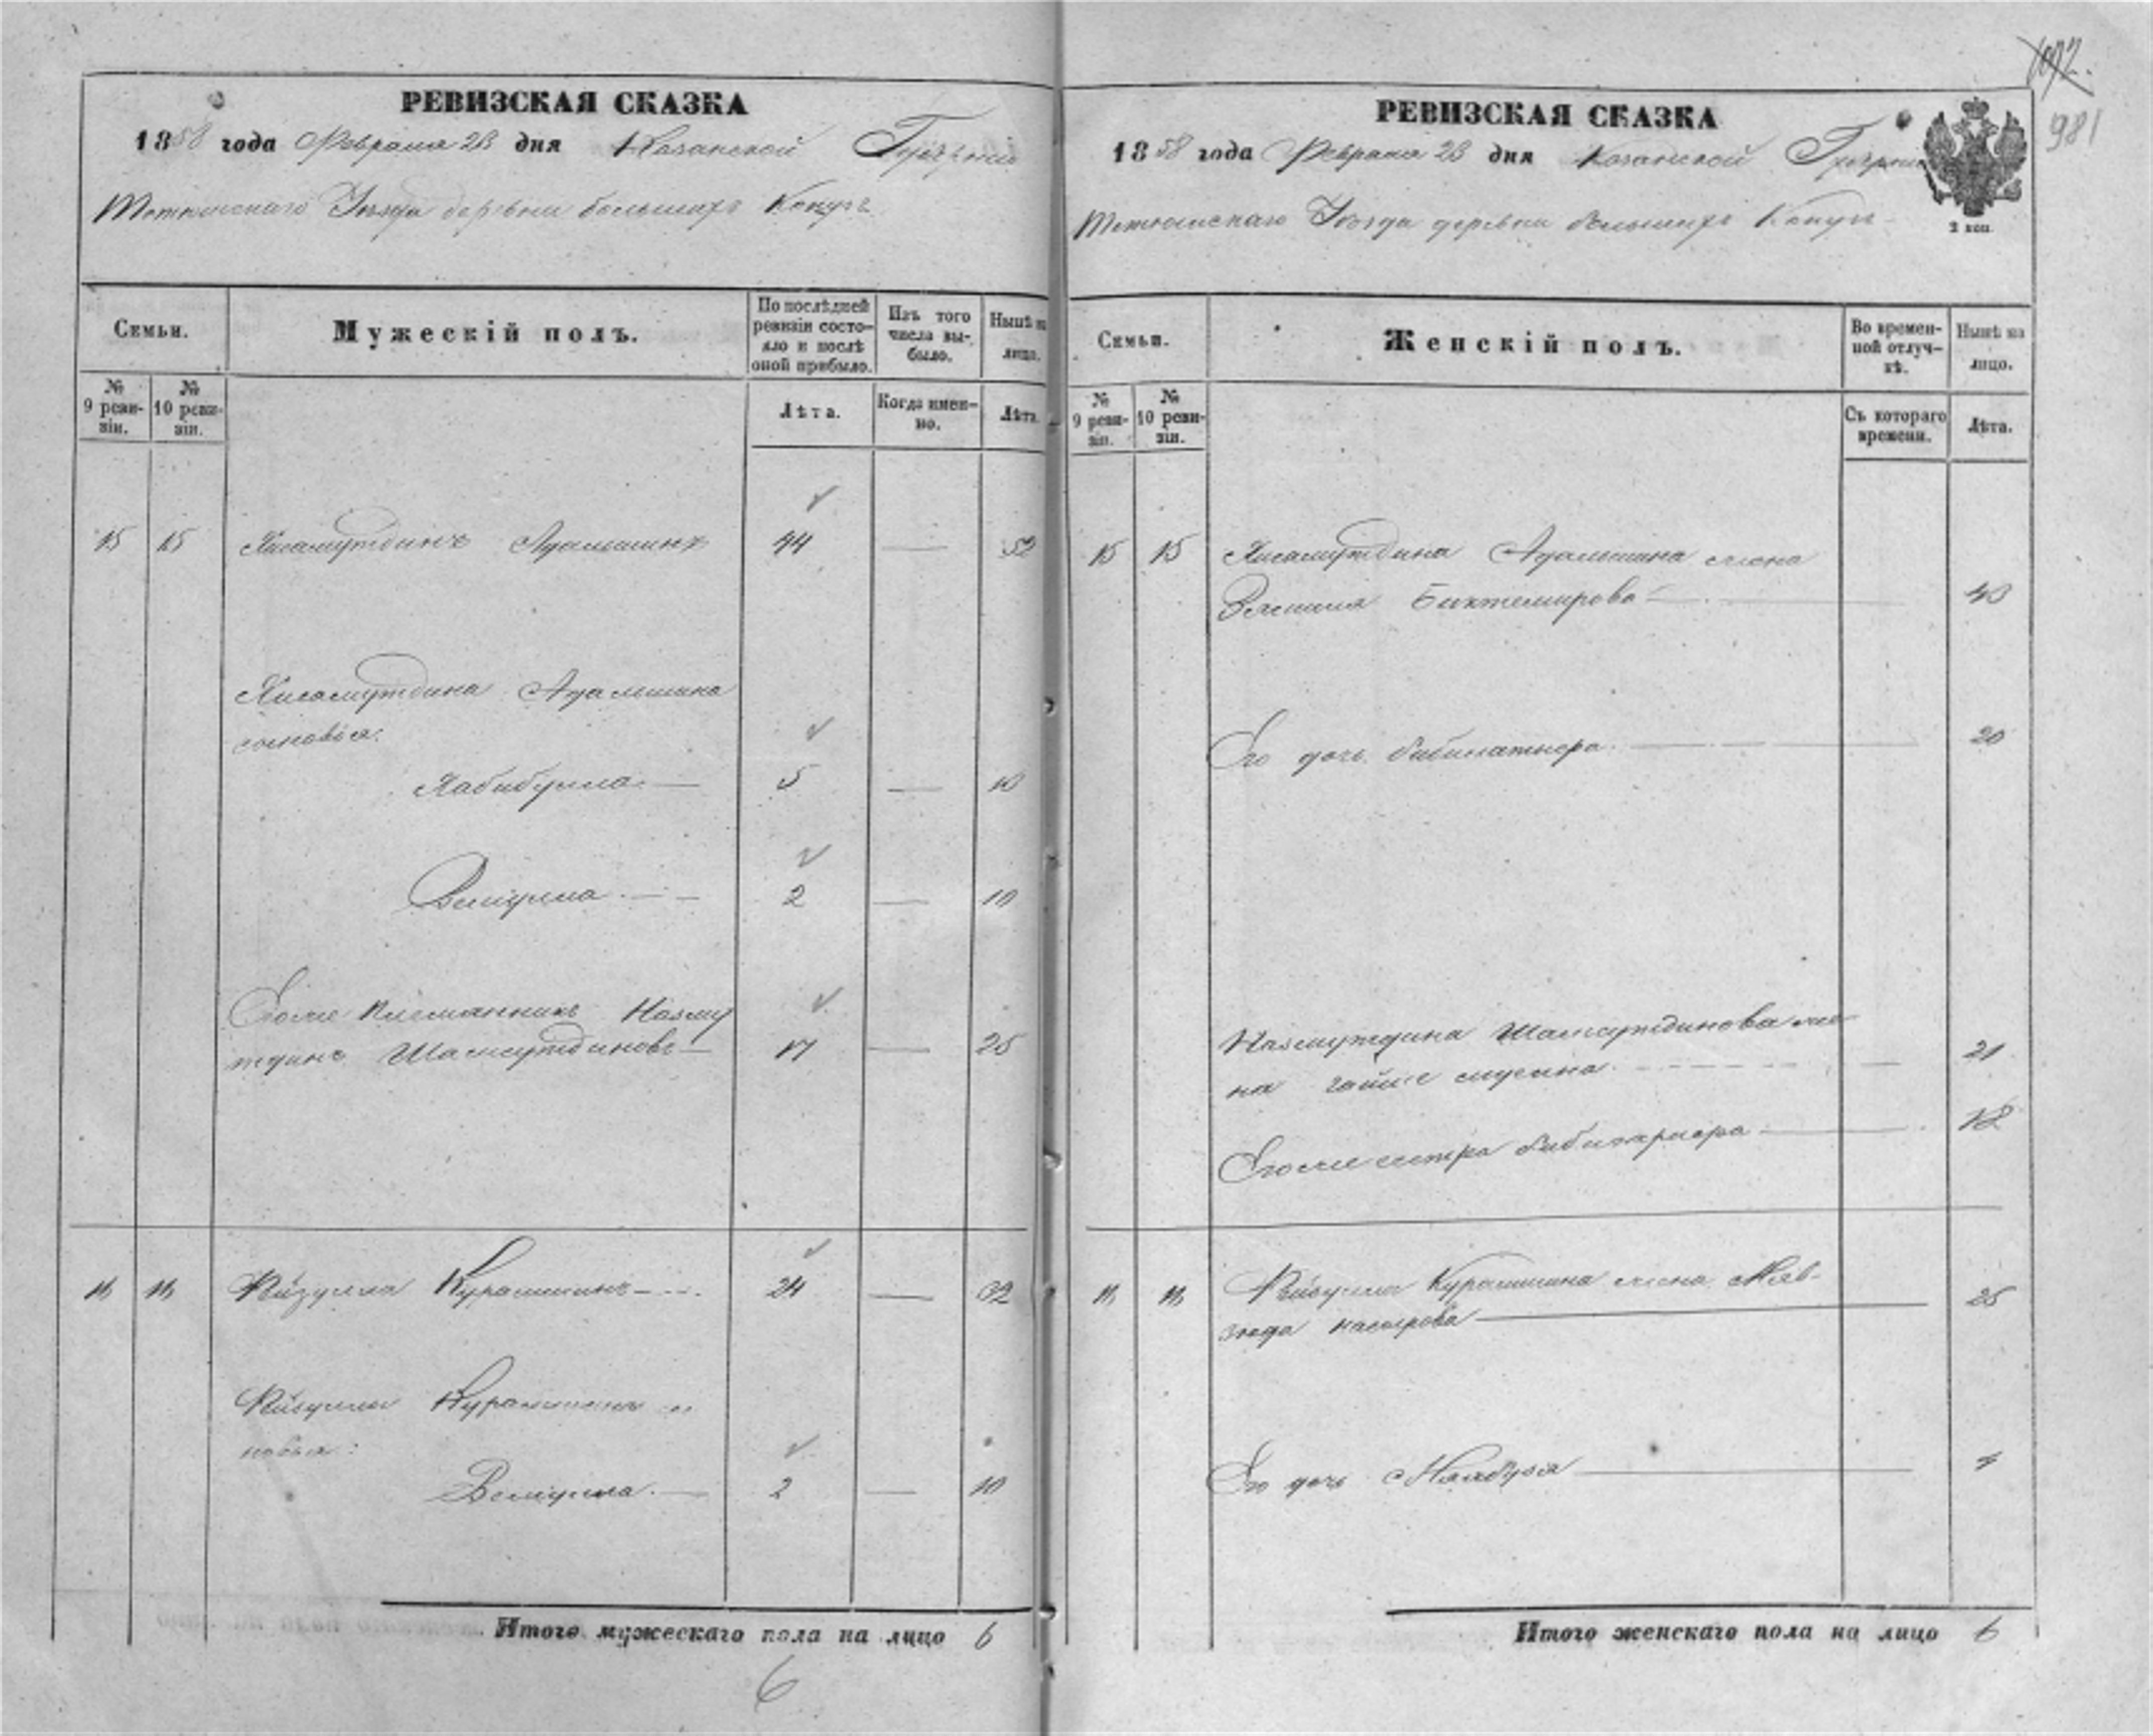 РЕВИЗСКАЯ СКАЗКА
1858 года Февраля 23 дня Казанской Губерніи
Тетюшскаго Уѣзда деревни большихъ
Семьи.
Мужескій полъ.
По послѣдней ревизіи состо-
яло и послѣ
оной прибыло.
Изъ того
числа вы-
было.
Нынѣ на
лицо.
№
9 реви-
зіи.
№
10 реви-
зіи.
Лѣта.
Когда имен-
но.
Лѣта.
15 15 Хисамутдинъ Адамшинъ 44 — 52
Хисамутдина Адамшина
сыновья:
Хабибулла — 5 —
Велиулла — 2 — 10
Егоже племянникъ Назму
тдинъ Шамсутдиновъ — 17 — 25
16 16 Фйзулла Курамшинъ — 24 — 32
Фйзуллы Курамшина
новья:
Велиулла — 2 — 10
Итого мужескаго пола на лицо 6
6
1092.
981
РЕВИЗСКАЯ СКАЗКА
1858 года Февраля 23 дня Казанской Губерніи
Тетюшскаго Уѣзда деревни большихъ
2 коп.
Семьи.
Женскій полъ.
Во времен-
ной отлуч-
кѣ.
Нынѣ на
лицо.
№
9 реви-
зіи.
№
10 реви-
зіи.
Съ котораго
времени.
Лѣта.
15 15 Хисамутдина Адамшина жена
Биктемирова — 40
Его дочь — 20
Назмутдина Шамсутдинова же-
на — 21
Егоже сестра — 18
16 16 Фйзуллы Курамшина жена Мяв-
зюда насырова — 25
Его дочь — 7
Итого женскаго пола на лицо 6